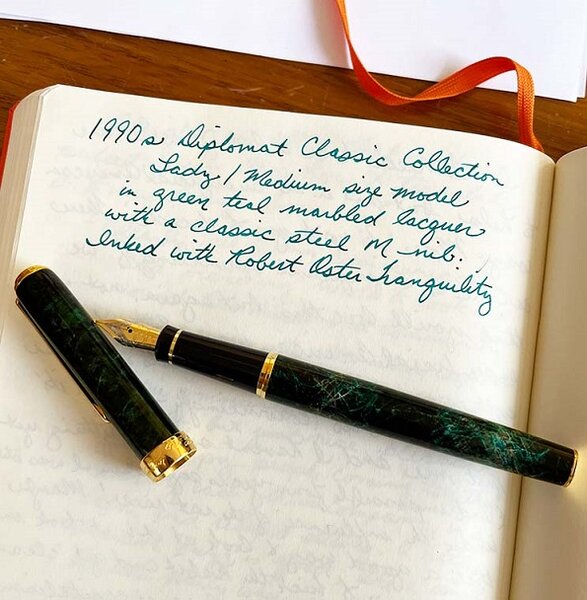 1990s Diplomat Classic Collection
Lady / Medium size model
in green teal marbled lacquer
with a classic steel M nib.
Inked with Robert Oster Tranquility